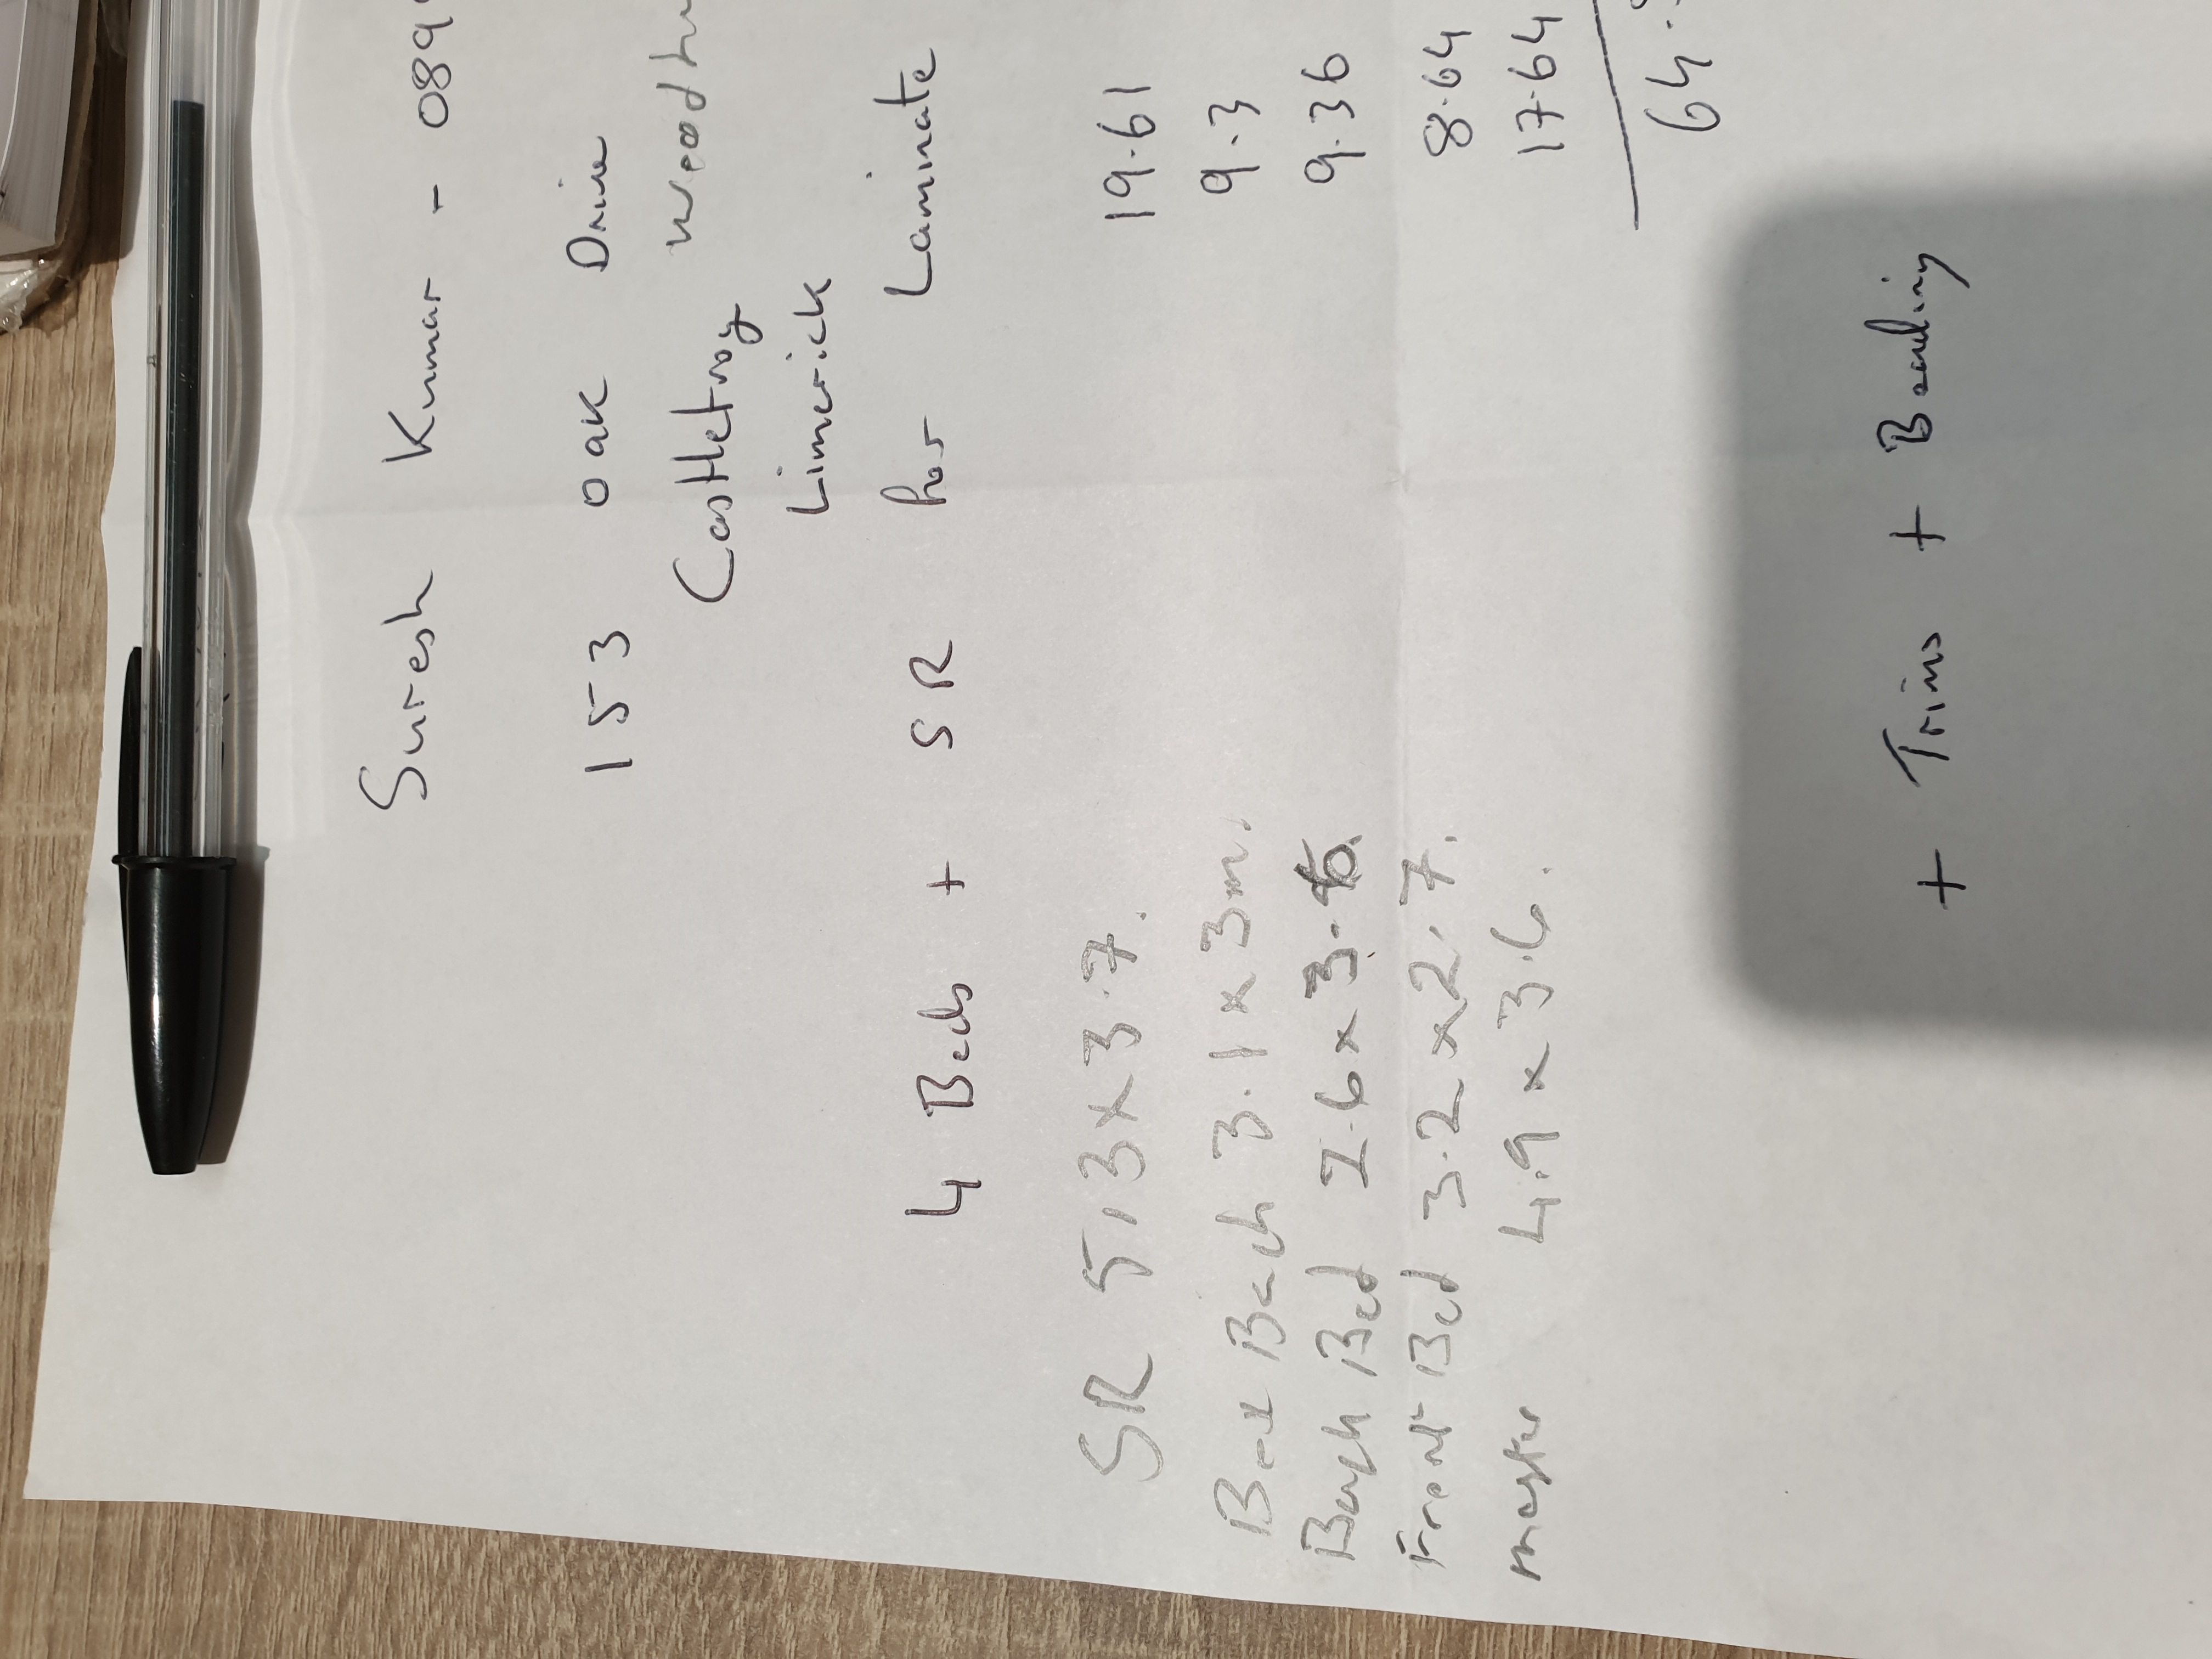 Suresh Kumar - 089
153 Oak Drive
Castletroy
Limerick
4 Beds + SR for Laminate
SR 5.3 x 3.7. 19.61
Back 3.1 x 3m. 9.3
Back Bed 2.6 x 3.6. 9.36
Front Bed 3.2 x 2.7. 8.64
master 4.9 x 3.6. 17.64
64.
+ Trims + Beading